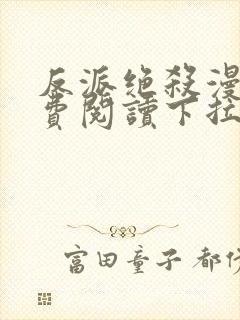 反派絕殺漫
費閱讀下拉
富田童子 都